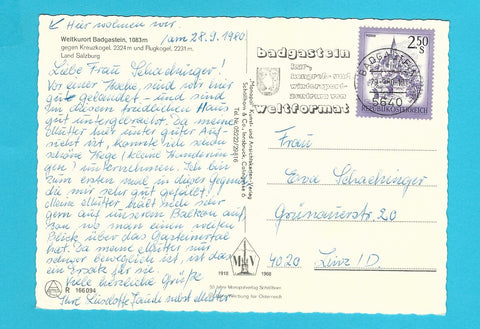 ↙ Hier wohnen wir.
Weltkurort Badgastein, 1083m
gegen Kreuzkogel, 2324m und Flugkogel, 2231m,
Land Salzburg
/am 28.9.1980.
Liebe Frau Schaebinger!
Vor einer Woche, sind wir hier
gut gelandet - und sind
in diesem friedlichen Haus
gut untergebracht. Da meine
Mutter hier unter guter Auf-
sicht ist, konnte ich schon
schöne Wege (kleine Wanderun-
gen) unternehmen. Ich bin
zum ersten mal in dieser Gegend,
die mir sehr gut gefällt!
Meine Mutter hält sich sehr
gern auf unserem Balkon auf,
von wo man einen weiten
Blick über das Gasteinertal
hat. Da meine Mutter nur
schwer beweglich ist, ist das
ein Ersatz für sie.
Viele herzliche Grüße
Ihre Liselotte samt Mutter
R 166094
Monopol-Kunst- und Ansichtskarten-Verlag
Schöllhorn & Co., Innsbruck
badgastein
kur-,
kongreß- und
wintersport-
zentrum von
weltformat
BADGASTEIN
5640
2.50
S
REPUBLIK ÖSTERREICH
Frau
Eva Schaebinger
Grünauerstr. 20
4020 Linz/D.
1918 1968
50 Jahre Monopolverlag Schöllhorn
Werbung für Österreich